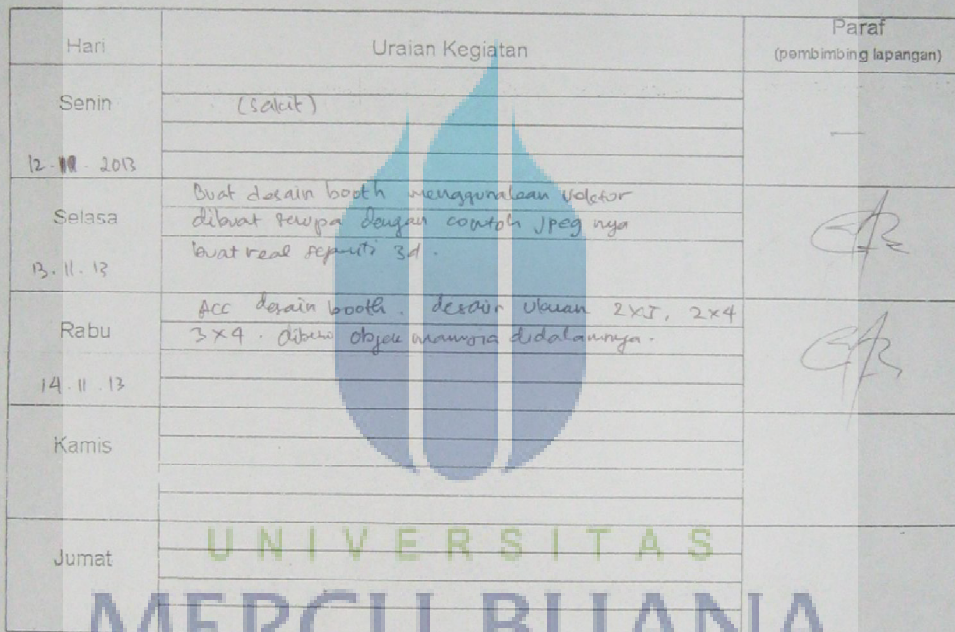 Hari Uraian Kegiatan Paraf
(pembimbing lapangan)
Senin (sakit)
12 - 11 - 2013
Buat desain booth menggunakan vektor
Selasa dibuat serupa dengan contoh jpeg nya
buat real seperti 3d.
13.11.13
Acc desain booth. desain ukuran 2x5, 2x4
Rabu 3x4. diberi objek manusia didalamnya.
14.11.13
Kamis
Jumat
UNIVERSITAS
MERCU BUANA